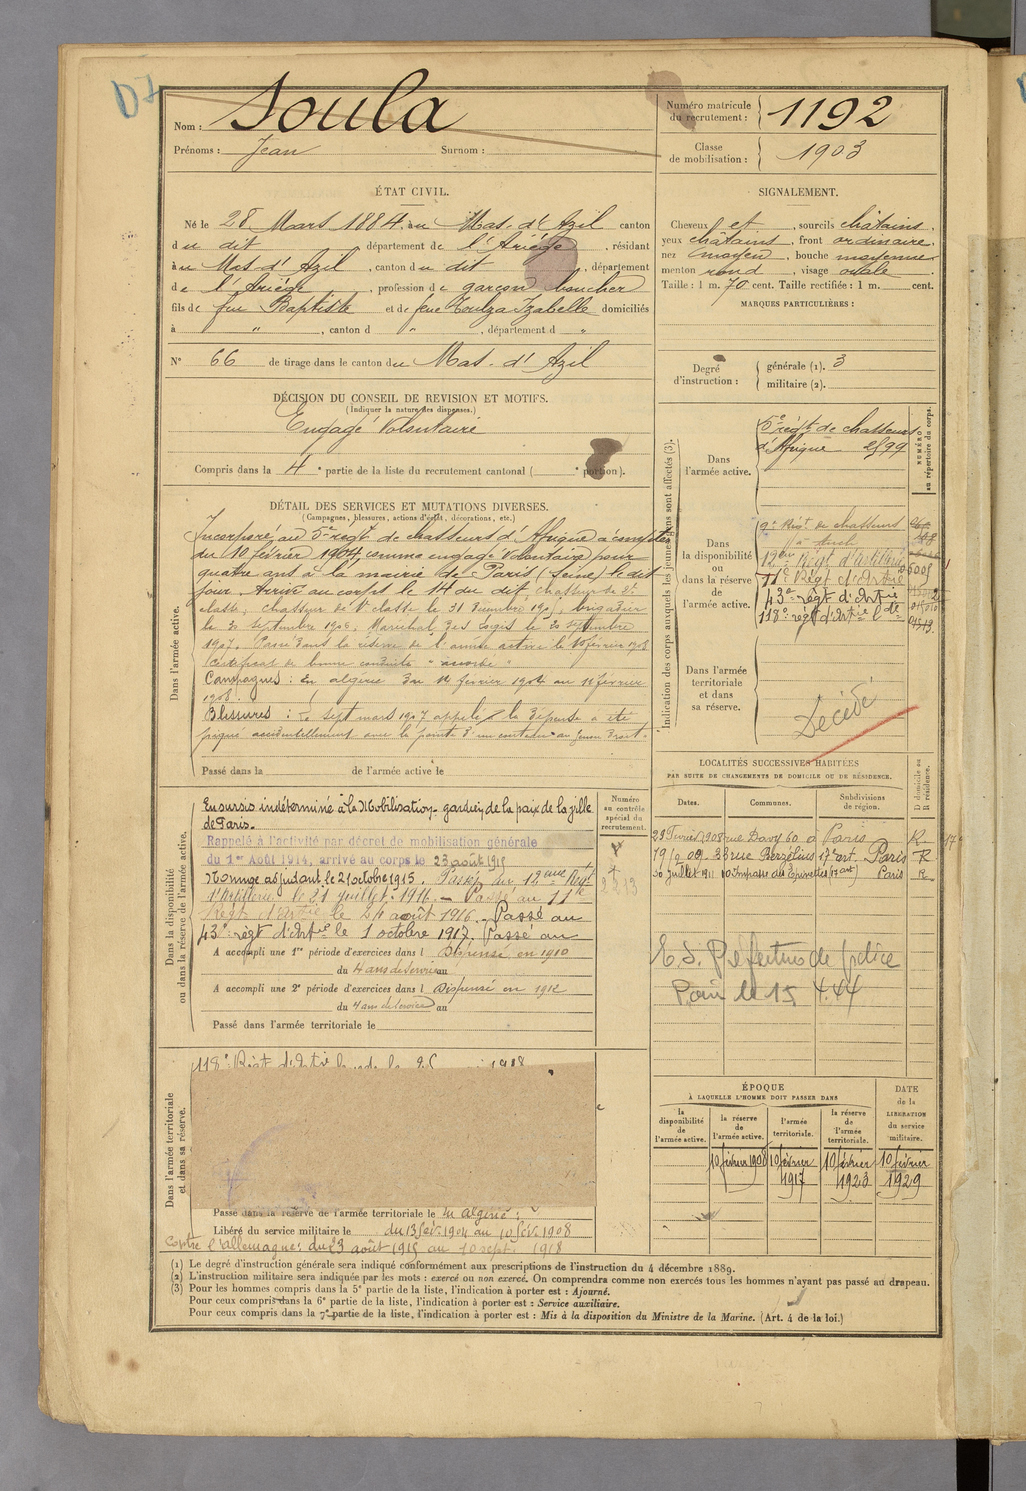 Nom : Soula
Prénoms : Jean Surnom :
Numéro matricule du recrutement : 1192
Classe de mobilisation : 1903
ÉTAT CIVIL.
Né le 28 Mars 1884, au Mas-d'Azil canton
du dit, département de l'Ariége, résidant
au Mas-d'Azil, canton du dit, département
de l'Ariége, profession de garçon boucher
fils de feu Baptiste et de feue Toulza Izabelle domiciliés
à " , canton d " , département d "
N° 66 de tirage dans le canton du Mas-d'Azil
SIGNALEMENT.
Cheveux et , sourcils châtains,
yeux châtains, front ordinaire,
nez moyen, bouche moyenne
menton rond, visage ovale.
Taille : 1 m. 70 cent. Taille rectifiée : 1 m. cent.
MARQUES PARTICULIÈRES :
Degré d'instruction : générale (1). 3
militaire (2).
DÉCISION DU CONSEIL DE REVISION ET MOTIFS.
(Indiquer la nature des dispenses.)
Engagé Volontaire
Compris dans la 4e partie de la liste du recrutement cantonal ( e portion).
DÉTAIL DES SERVICES ET MUTATIONS DIVERSES.
(Campagnes, blessures, actions d'éclat, décorations, etc.)
Dans l'armée active.
Incorporé au 5e regt de chasseurs d'Afrique à compter
du 10 février 1904, comme engagé Volontaire pour
quatre ans à la mairie de Paris (Seine) le dit
jour. Arrivé au corps le 14 du dit, chasseur de 2e
classe, chasseur de 1e classe le 31 Décembre 1905, brigadier
le 20 septembre 1906. Maréchal des logis le 20 septembre
1907. Passé dans la réserve de l'armée active le 10 février 1908
Certificat de bonne conduite "accordé"
Campagnes : en algérie du 14 février 1904 au 10 février
1908.
Blessures : Le sept mars 1907 a été
piqué accidentellement avec la pointe d'un couteau au genou droit.
Passé dans la de l'armée active le
Indication des corps auxquels les jeunes gens sont affectés (3).
NUMÉRO au répertoire du corps.
Dans l'armée active.
5e régt de chasseurs
d'Afrique 2599
Dans la disponibilité ou dans la réserve de l'armée active.
9e Régt de chasseurs
à Auch
12eme Régt d'Artillerie
11e Régt d'Artie
43e régt d'Artie
118e régt d'Artie lde
Dans l'armée territoriale et dans sa réserve.
Décédé
Dans la disponibilité ou dans la réserve de l'armée active.
Numéro au contrôle spécial du recrutement.
En sursis indéterminé à la Mobilisation gardien de la paix de la ville
de Paris.
Rappelé à l'activité par décret de mobilisation générale
du 1er Août 1914, arrivé au corps le 23 août 1915
Nommé adjudant le 21 octobre 1915. Passé au 12eme Régt
d'Artillerie le 21 juillet 1916. - Passé au 11e
Régt d'Artie le 24 août 1916. Passé au
43e régt d'Artie le 1 octobre 1917. Passé au
A accompli une 1re période d'exercices dans l Dispensé en 1910
du 4 ans de service au
A accompli une 2e période d'exercices dans l Dispensé en 1912
du 4 ans de service au
Passé dans l'armée territoriale le
LOCALITÉS SUCCESSIVES HABITÉES
PAR SUITE DE CHANGEMENTS DE DOMICILE OU DE RÉSIDENCE.
Dates. Communes. Subdivisions de région. D domicile ou R résidence.
29 Février 1908 rue Davy 60 à Paris R
19/9 09 - 33 rue Berzélius 17e art. Paris R
30 Juillet 1911 10 Impasse des Epinettes (17 art) Paris R
E. S. Préfecture de police
Paris le 15 4.44
Dans l'armée territoriale et dans sa réserve.
118e Régt d'Artie lourde le 1918
Passé dans la réserve de l'armée territoriale le en algérie :
Libéré du service militaire le du 13 fév. 1904 au 10 fév. 1908
Contre l'allemagne : du 23 août 1915 au 10 sept. 1918
ÉPOQUE
À LAQUELLE L'HOMME DOIT PASSER DANS
la disponibilité de l'armée active. la réserve de l'armée active. l'armée territoriale. la réserve de l'armée territoriale.
DATE de la LIBÉRATION du service militaire.
10 février 1908 10 février 1917 10 février 1923 10 février 1929
(1) Le degré d'instruction générale sera indiqué conformément aux prescriptions de l'instruction du 4 décembre 1889.
(2) L'instruction militaire sera indiquée par les mots : exercé ou non exercé. On comprendra comme non exercés tous les hommes n'ayant pas passé au drapeau.
(3) Pour les hommes compris dans la 5e partie de la liste, l'indication à porter est : Ajourné.
Pour ceux compris dans la 6e partie de la liste, l'indication à porter est : Service auxiliaire.
Pour ceux compris dans la 7e partie de la liste, l'indication à porter est : Mis à la disposition du Ministre de la Marine. (Art. 4 de la loi.)